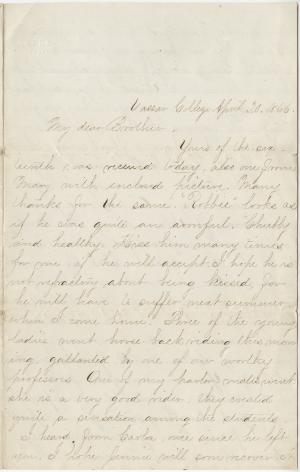 Vassar College April 20. 1866.
My dear Brother,
Yours of the six-
teenth was received today, also one from
Mary with enclosed picture. Many
thanks for the same. "Robbie" looks as
if he was quite an armful. Chubby
and healthy. Kiss him many times
for me, if he will accept. I hope he is
not refractory about being kissed, for
he will have to suffer next summer
when I come home. Three of the young
ladies went horse back riding this morn-
ing, gallanted by one of our worthy
professors. One of my parlor mates went
she is a very good rider. they created
quite a sensation among the students.
I heard from once since he left
I hope Jennie will soon recover